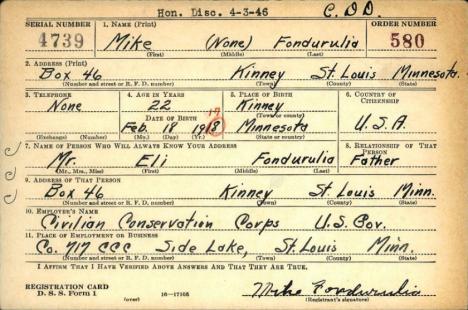 Hon. Disc. 4-3-46 C.D.D.
SERIAL NUMBER 1. NAME (Print) ORDER NUMBER
4739 Mike (None) Fondurulia 580
(First) (Middle) (Last)
2. ADDRESS (Print)
Box 46 Kinney St. Louis Minnesota.
(Number and street or R. F. D. number) (Town) (County) (State)
3. TELEPHONE 4. AGE IN YEARS 5. PLACE OF BIRTH 6. COUNTRY OF CITIZENSHIP
None 22 Kinney
DATE OF BIRTH (Town or county)
17
Feb. 18 1918 Minnesota U.S.A.
(Exchange) (Number) (Mo.) (Day) (Yr.) (State or country)
7. NAME OF PERSON WHO WILL ALWAYS KNOW YOUR ADDRESS 8. RELATIONSHIP OF THAT PERSON
Mr. Eli Fondurulia Father
(Mr., Mrs., Miss) (First) (Middle) (Last)
9. ADDRESS OF THAT PERSON
Box 46 Kinney St Louis Minn.
(Number and street or R. F. D. number) (Town) (County) (State)
10. EMPLOYER'S NAME
Civilian Conservation Corps U.S. Gov.
11. PLACE OF EMPLOYMENT OR BUSINESS
Co. 717 CCC Side Lake, St. Louis Minn.
(Number and street or R. F. D. number) (Town) (County) (State)
I AFFIRM THAT I HAVE VERIFIED ABOVE ANSWERS AND THAT THEY ARE TRUE.
REGISTRATION CARD
D. S. S. Form 1 (over) 16—17105 Mike Fondurulia
(Registrant's signature)